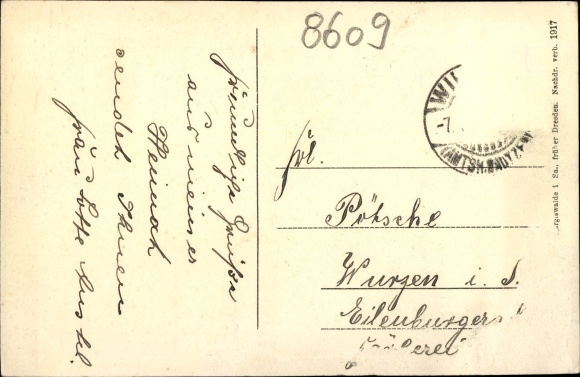 8609
freundliche Grüße
aus meiner
Heimat
sendet Ihnen
WI
-7.
(AMTSH.
Frl.
Pötsche
Wurzen i. S.
Eilenburgers
i. Sa., früher Dresden. Nachdr. verb. 1917